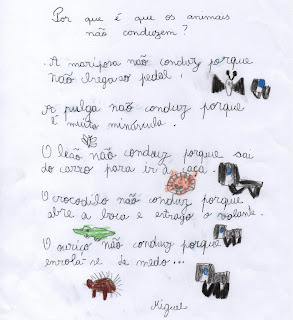 Por que é que os animais
não conduzem?
. A mariposa não conduz porque
não chega ao pedal!
A pulga não conduz porque
é muito minúscula.
O leão não conduz porque sai
do carro para ir à caça.
O crocodilo não conduz porque
abre a boca e estraga o volante.
O ouriço não conduz porque
enrola-se de medo...
Miguel